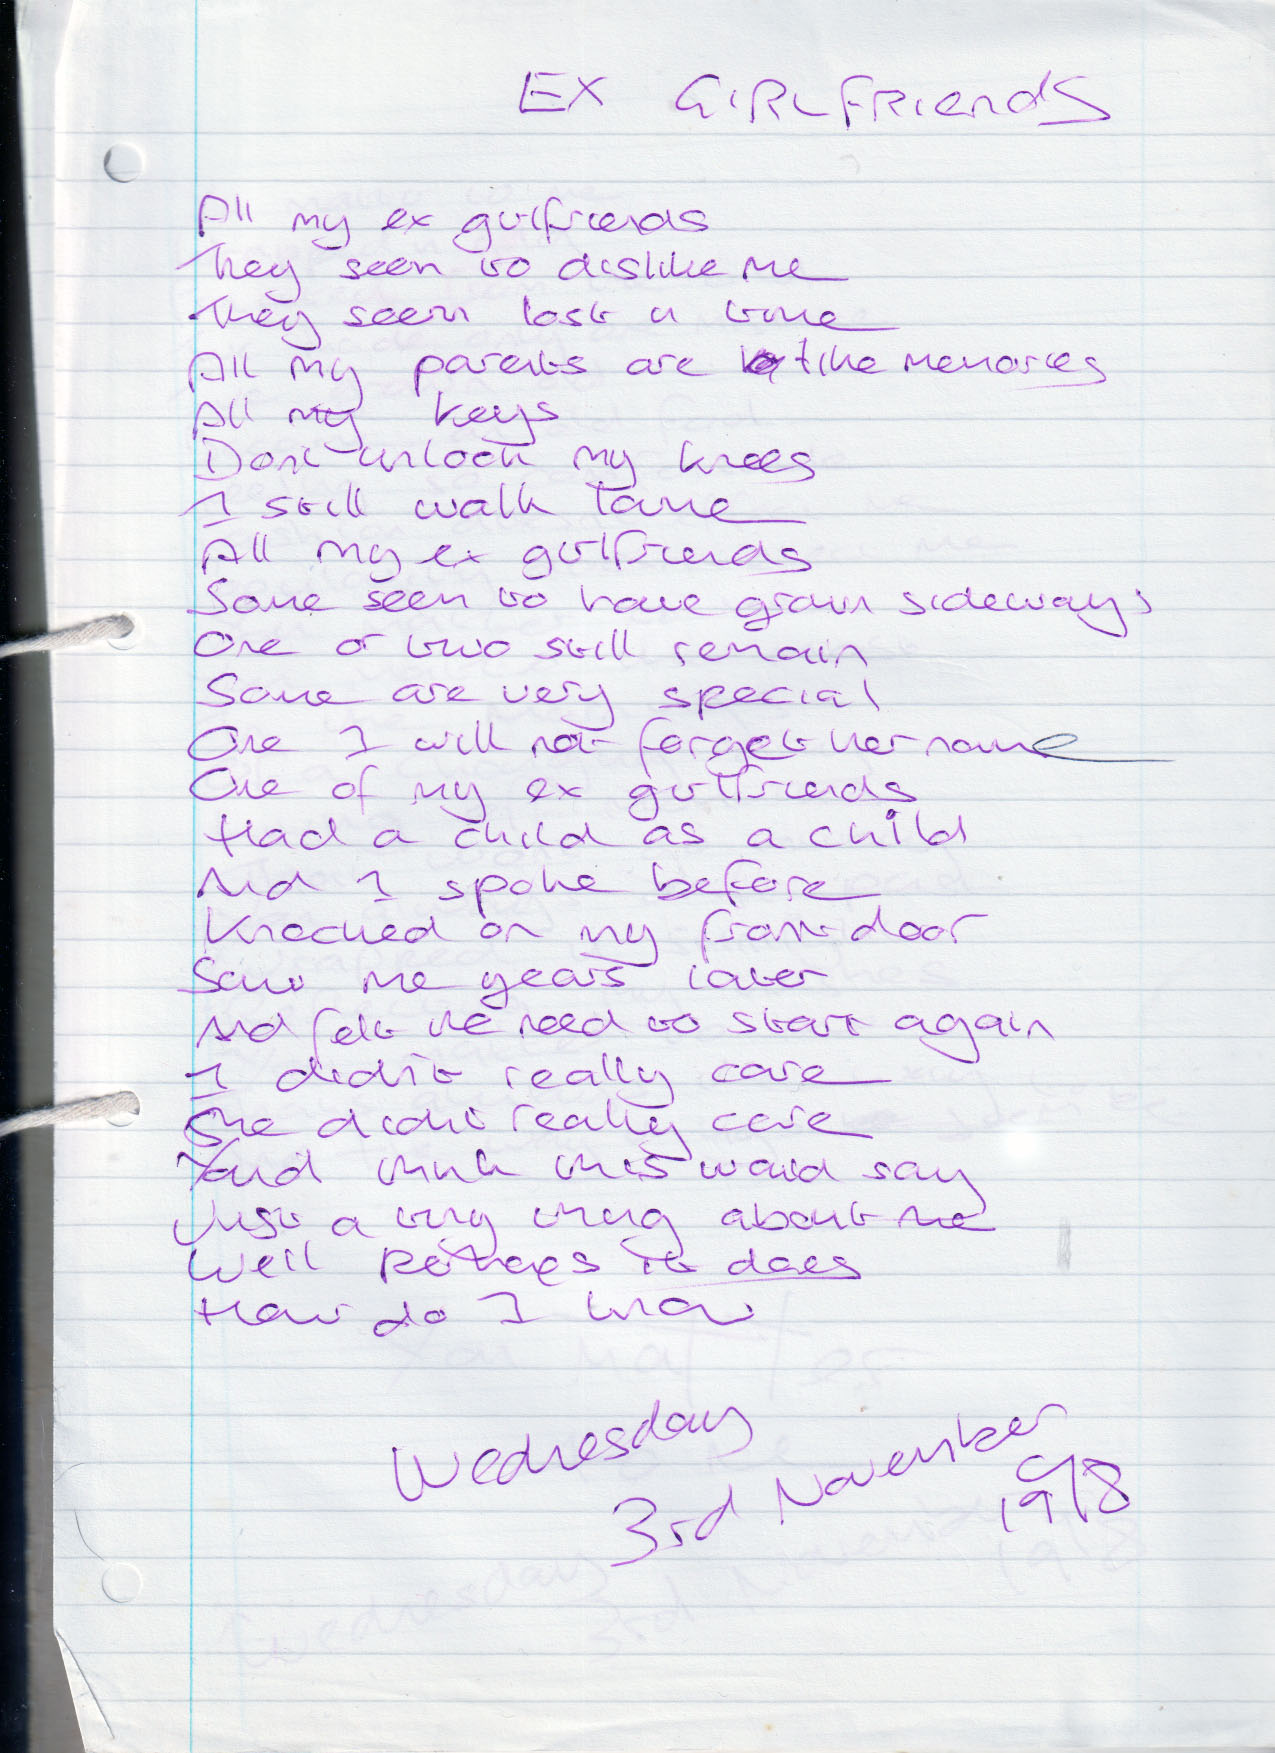 EX GIRLFRiendS
All my ex girlfriends
They seem to dislike me
They seem lost in time
All my parents are like memories
All my keys
Dont unlock my knees
I still walk lame
All my ex girlfriends
Some seem to have grown sideways
One or two still remain
Some are very special
One I will not forget her name
One of my ex girlfriends
Had a child as a child
And I spoke before
Knocked on my front door
Saw me years later
And felt the need to start again
I didn't really care
She didn't really care
Youd think this would say
Just a tiny thing about me
Well Perhaps it does
How do I know
Wednesday
3rd November
1998